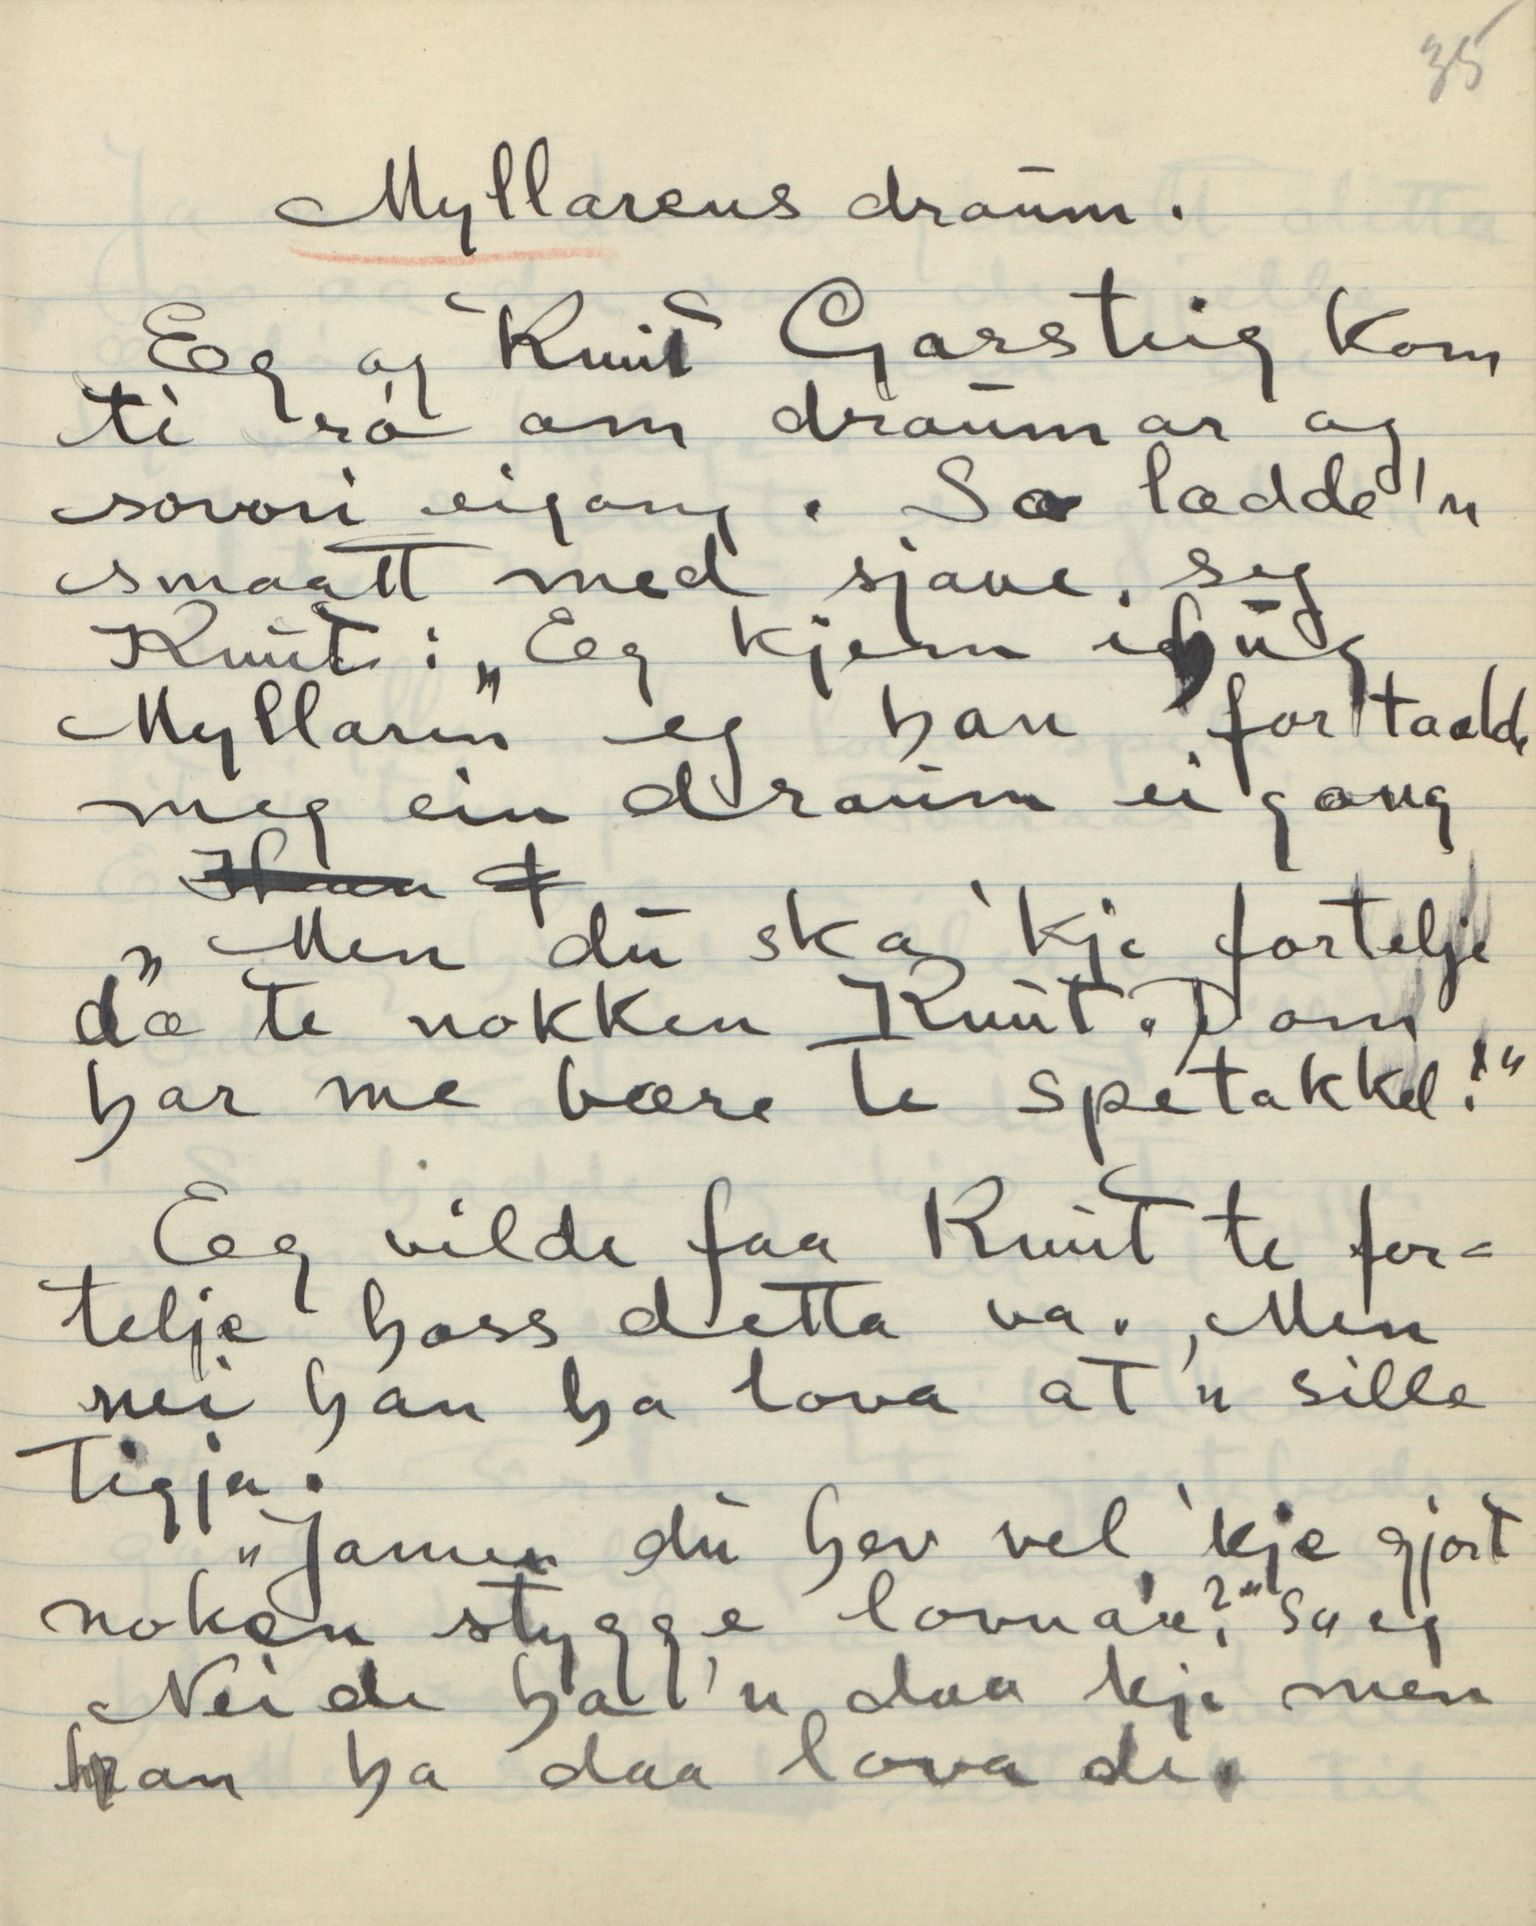 35
Myllarens draum.
Eg og Knut Garsteig kom
ti rø om draumar og
sovori eigong. So lædde'n
smaatt med sjaue, seg
Knut: „Eg kjem ihug
Myllaren" eg han fortaalde
meg ein draum ei gong
„Men du ska 'kje fortelje
dæ te nokken Knut. Dom
har me bære te spetakkel!"
Eg vilde faa Knut te for-
telje hoss detta va. Men
nei han ha lova at'n sille
tigja.
"Jamen du hev vel 'kje gjort
noken stygge lovnar?" Sa eg
Nei de ha'n daa kje men
han ha daa lova de.